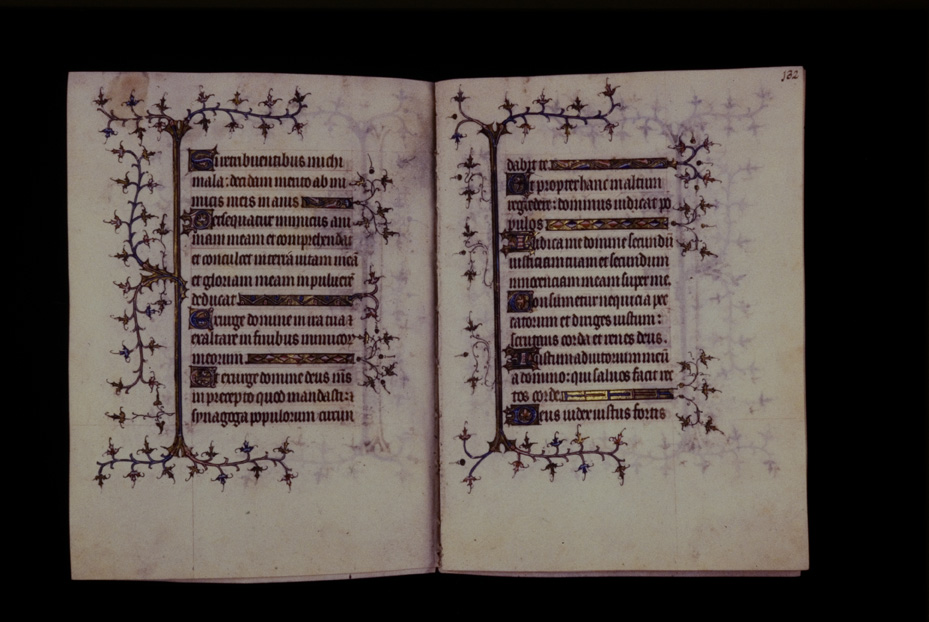 Si reddi retribuentibus michi
mala: decidam merito ab ini
micis meis inanis
Persequatur inimicus ani
mam meam et comprehendat
et conculcet in terrã uitam meã
et gloriam meam in puluerẽ
deducat
Exurge domine in ira tua et
exaltare in finibus inimicor
meorum
Et exurge domine deus m̃s
in precepto quod mandasti: et
synagoga populorum circun
132
dabit te
Et propter hanc in altum
regredere: dominus iudicat po
pulos
Iudica me domine secundũ
iusticiam tuam et secundum
innocentiam meam super me.
Consumetur nequicia pec
catorum et diriges iustum:
scrutans corda et renes deus.
Iustum adiutorium meũ
a domino: qui saluos facit rec
tos corde
Deus iudex iustus fortis